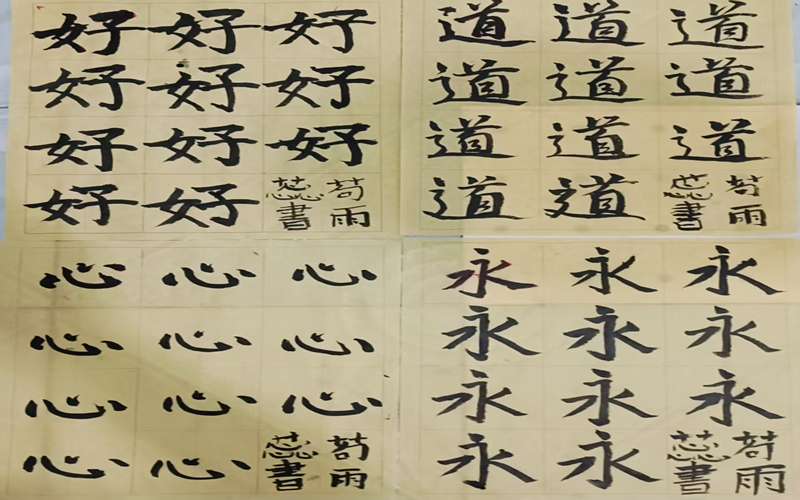 好好好
好好好
好好好
好好
雨
蕊書
道道道
道道道
道道道
道道
雨
蕊書
心心心
心心心
心心心
心心
雨
蕊書
永永永
永永永
永永永
永永
雨
蕊書